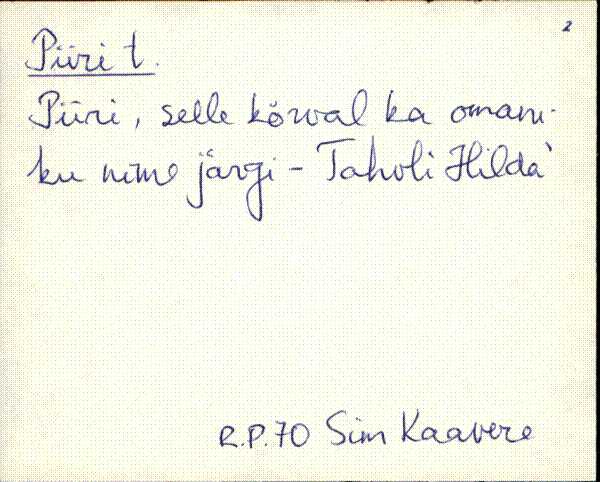 2
Piiri t.
Piiri, selle kõrval ka omani-
ku nime järgi - Taholi Hilda`
R.P.70 Sim Kaavere